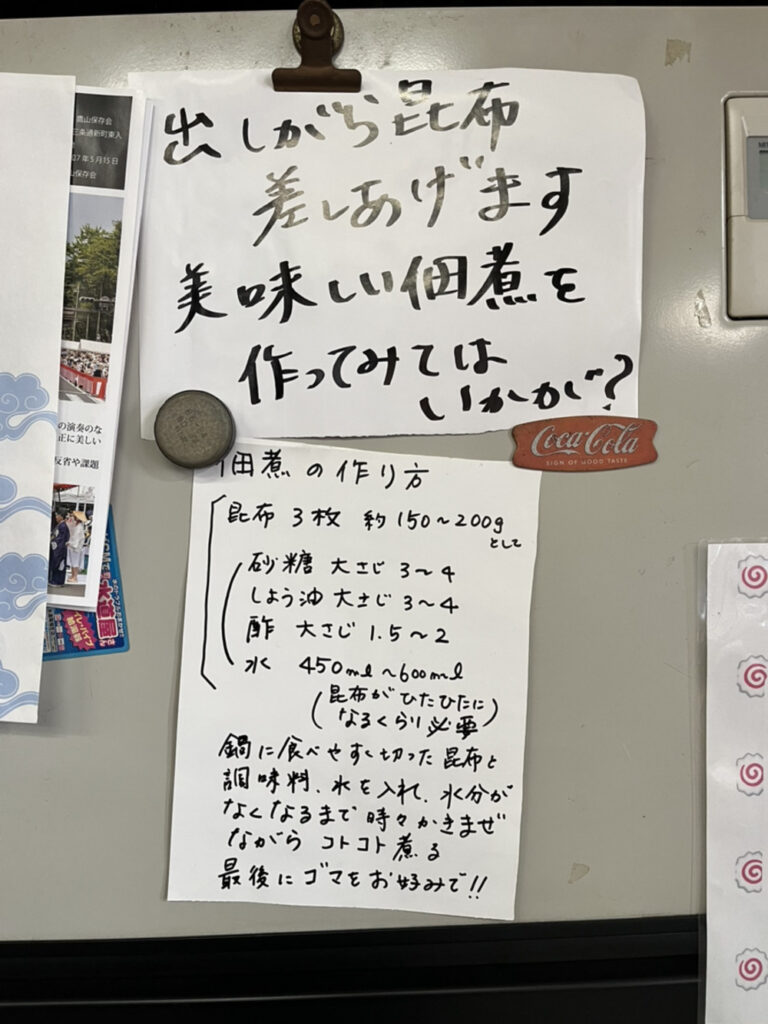 出しがら昆布
差しあげます
美味しい佃煮を
作ってみては
いかかが?
Coca-Cola
SIGN OF GOOD TASTE
佃煮の作り方
昆布 3枚 約150〜200g
として
砂糖 大さじ 3〜4
しょう油 大さじ 3〜4
酢 大さじ 1.5〜2
水 450ml〜600ml
(昆布がひたひたに
なるくらい必要)
鍋に食べやすく切った昆布と
調味料、水を入れ、水分が
なくなるまで時々かきまぜ
ながら コトコト煮る
最後にゴマをお好みで!!
鷹山保存会
三条通新町東入
07年5月15日
山保存会
の演奏のな
正に美しい
反省や課題